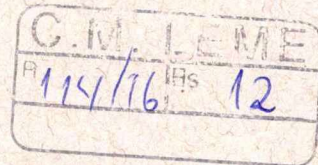 C.M. LEME
P 114/16 Fls 12